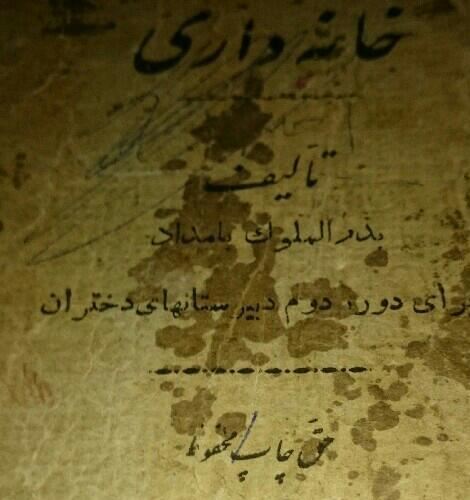 خانه داری
تألیف
بدرالملوك بامداد
برای دوره دوم دبیرستانهای دختران
حق چاپ محفوظ